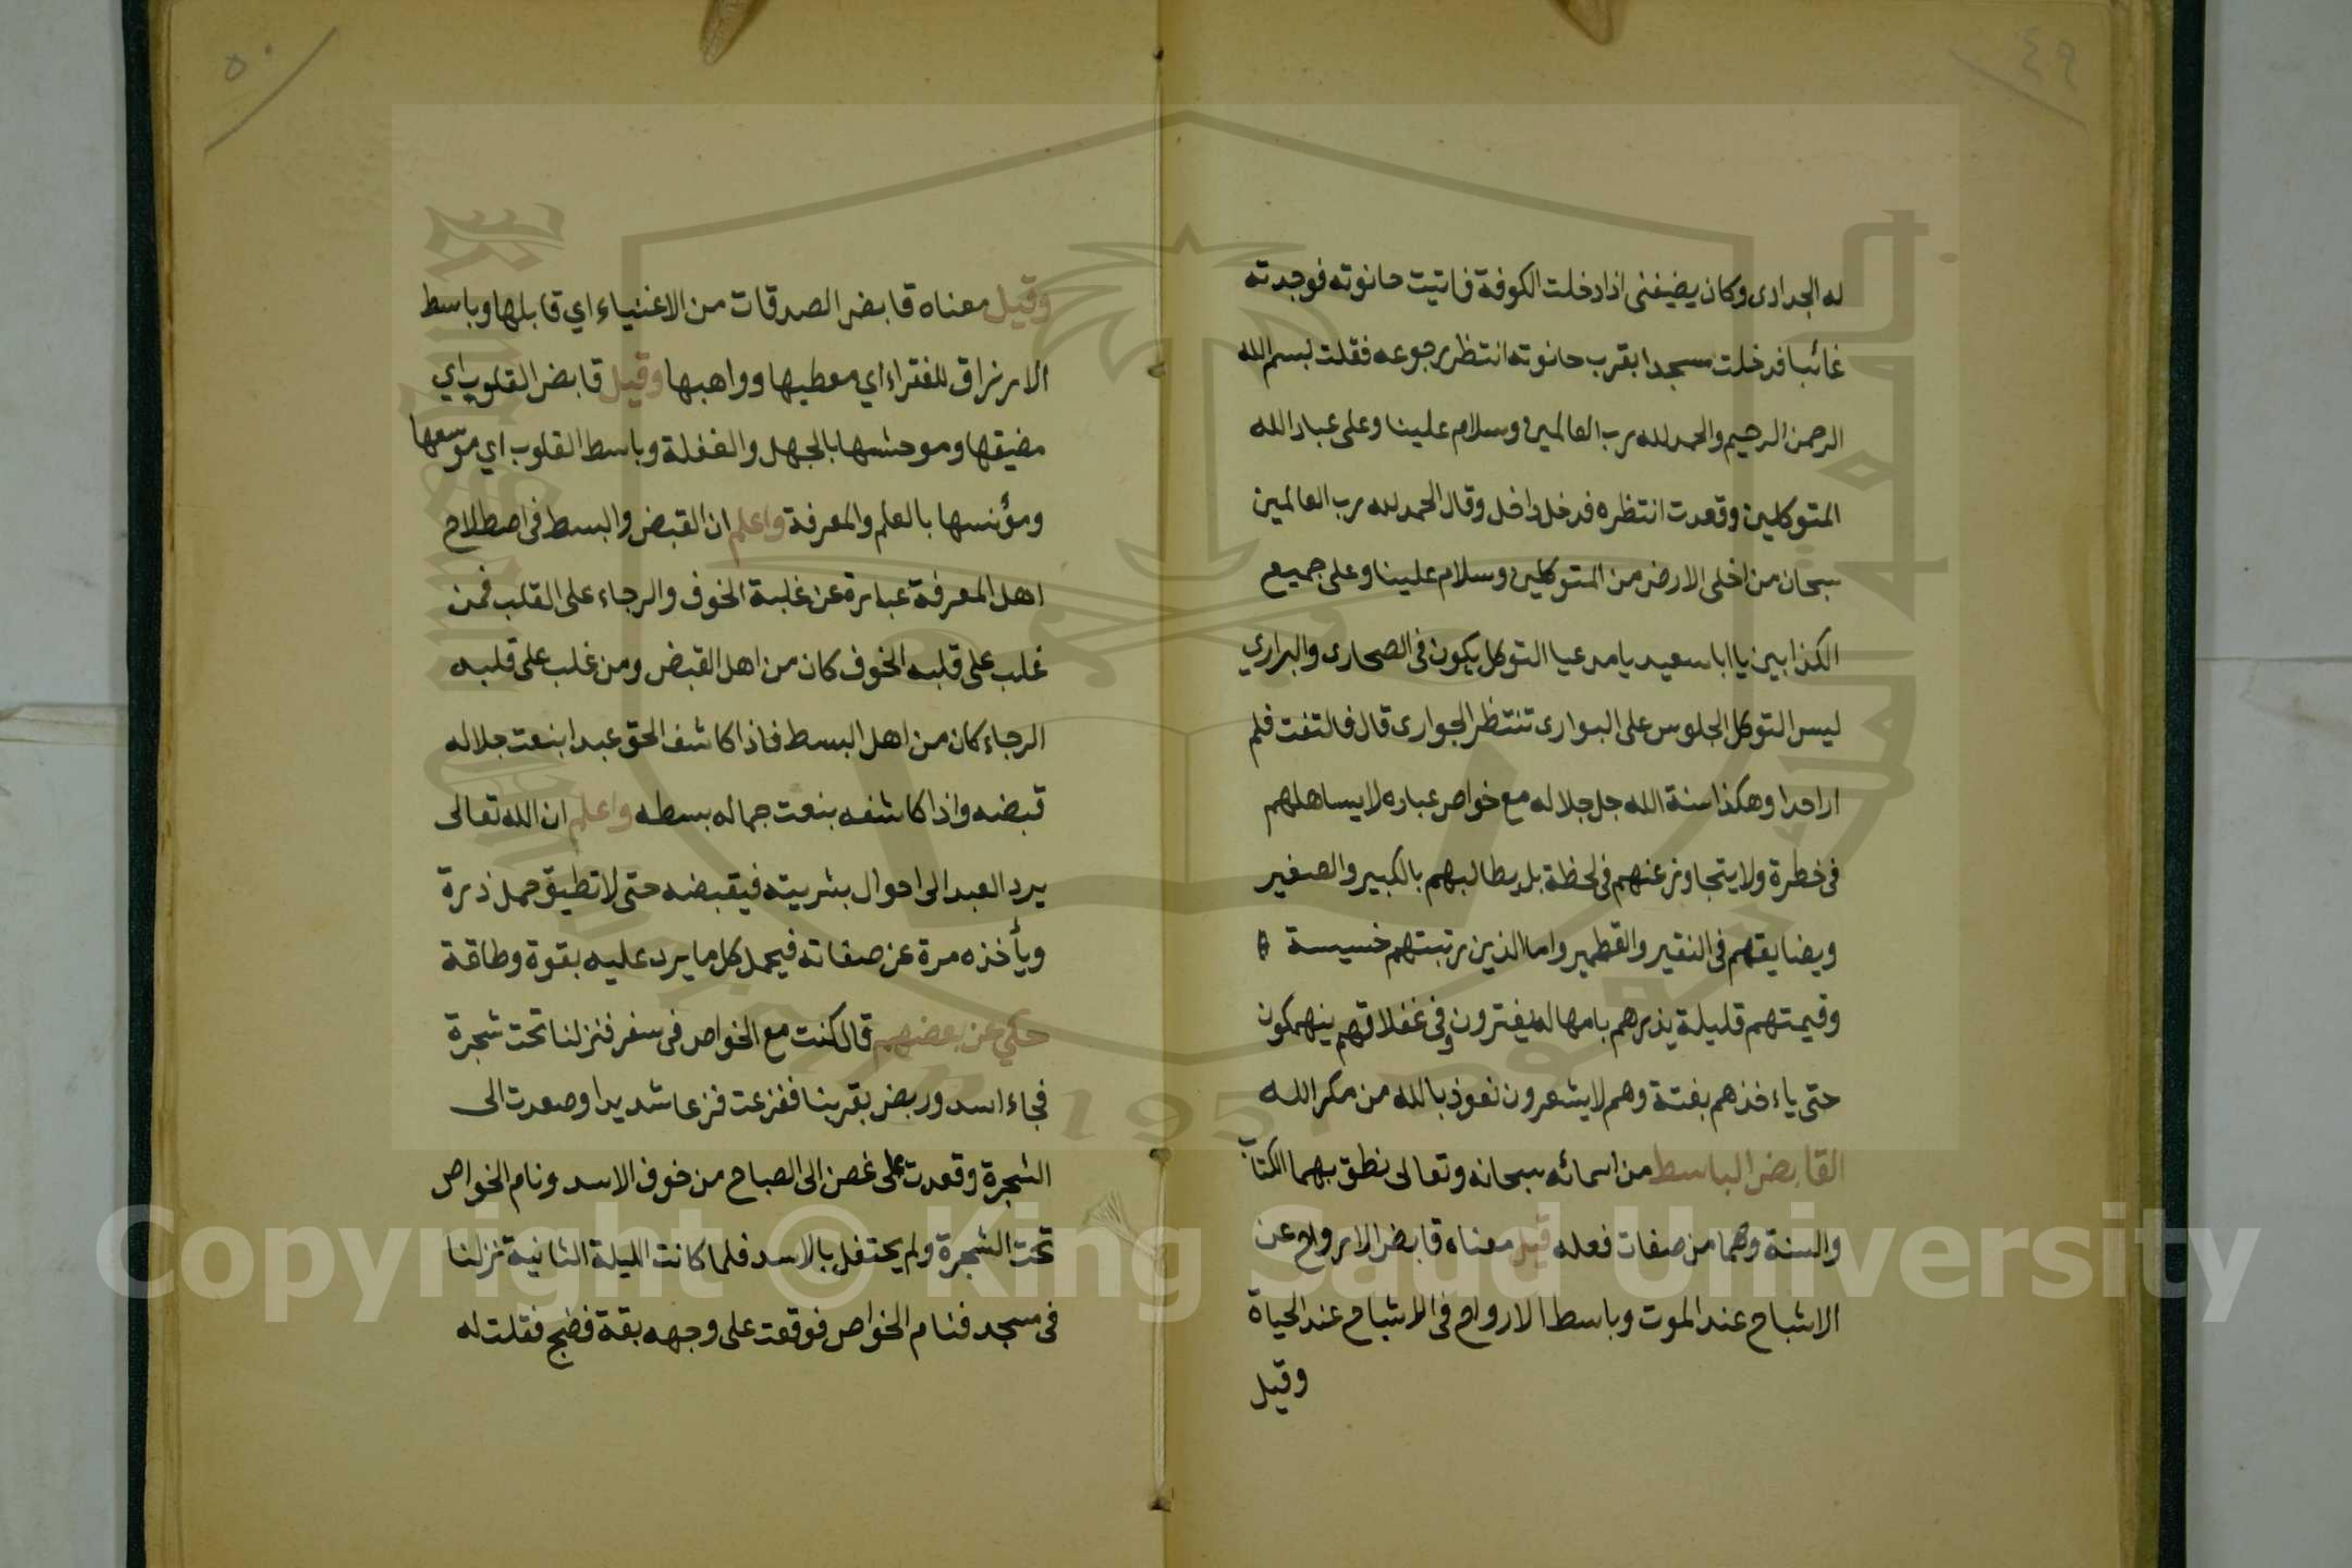 ٤٩
له الجرادى وكان يضيفنى اذا دخلت الكوفة فاتيت حانوته فوجدته
غائبا فدخلت مسجدا بقرب حانوته انتظر رجوعه فقلت بسم الله
الرحمن الرحيم والحمد لله رب العالمين وسلام علينا وعلى عباد الله
المتوكلين وقعدت انتظره فدخل داخل وقال الحمد لله رب العالمين
سبحان من اخلى الارض من المتوكلين وسلام علينا وعلى جميع
الكذابين يا ابا سعيد يا مدعيا التوكل يكون فى الصحارى والبراري
ليس التوكل الجلوس على البوارى تنتظر الجوارى قال فالتفت فلم
ار احدا وهكذا سنة الله جل جلاله مع خواص عباده لا يساهلهم
فى خطرة ولا يتجاوز عنهم فى لحظة بل يطالبهم بالكبير والصغير
ويضايقهم فى النقير والقطمير واما الذين رتبتهم خسيسة
وقيمتهم قليلة يذرهم بامهاله يغترون وفى غفلاتهم ينهمكون
حتى ياءخذهم بغتة وهم لا يشعرون نعوذ بالله من مكر الله
القابض الباسط من اسمائه سبحانه وتعالى نطق بهما الكتاب
والسنة وهما من صفات فعله قيل معناه قابض الارواح عن
الاشباح عند الموت وباسط الارواح فى الاشباح عند الحياة
وقيل
٥٠
وقيل معناه قابض الصدقات من الاغنياء اي قابلها وباسط
الارزاق للفقراء اي معطيها وواهبها وقيل قابض القلوب اي
مضيقها وموحشها بالجهل والغفلة وباسط القلوب اي موسعها
ومؤنسها بالعلم والمعرفة واعلم ان القبض والبسط فى اصطلاح
اهل المعرفة عبارة عن غلبة الخوف والرجاء على القلب فمن
غلب على قلبه الخوف كان من اهل القبض ومن غلب على قلبه
الرجاء كان من اهل البسط فاذا كاشف الحق عبدا بنعت جلاله
قبضه واذا كاشفه بنعت جماله بسطه واعلم ان الله تعالى
يرد العبد الى احوال بشريته فيقبضه حتى لا تطيق حمل ذرة
ويأخذه مرة عن صفاته فيحمل كل ما يرد عليه بقوة وطاقة
حكي عن بعضهم قال كنت مع الخواص فى سفر فنزلنا تحت شجرة
فجاء اسد وربض بقربنا ففزعت فزعا شديدا وصعدت الى
الشجرة وقعدت على غصن الى الصباح من خوف الاسد ونام الخواص
تحت الشجرة ولم يحتفل بالاسد فلما كانت الليلة الثانية نزلنا
فى مسجد فنام الخواص فوقعت على وجهه بقة فضج فقلت له
Copyright © King Saud University